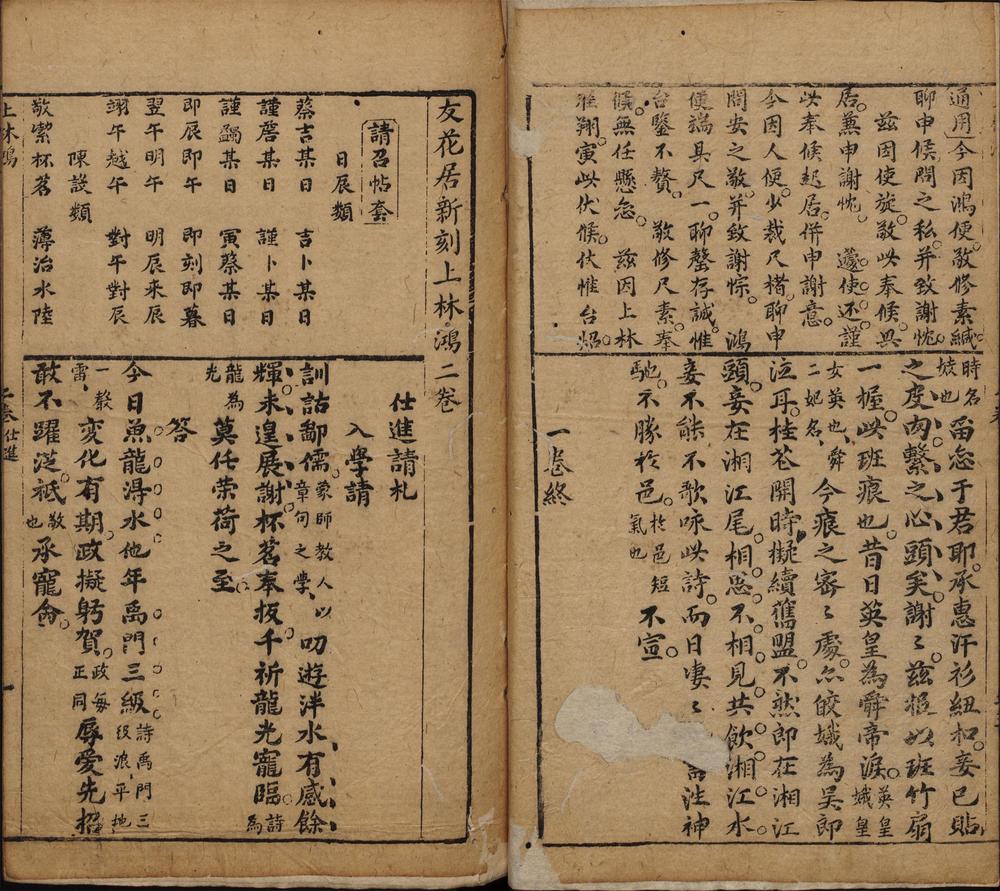 通用今因鴻便敬修素緘
聊申候問之私并致謝忱
茲因使旋敬此奉候興
居兼申謝忱　邊使还謹
此奉候起居併申謝意
今因人便少裁尺楮聊申
問安之敬并致謝悰　鴻
便端具尺一聊罄存誠惟
台鑒不贅　敬修尺素奉
候無任懸念　茲因上林
雅翔寅此伏候伏惟台炤
時名
妓也留念于君耶承惠汗衫紐扣妾已貼
之皮肉繫之心頭矣謝謝茲
班竹扇
一握此班痕也昔日英皇為舜帝淚英皇娥皇
女英也舜
二妃名今痕之密密處亦皎
為吳郎
泣耳桂花開時擬續舊盟不然即在湘江
頭妾在湘江尾相思不相見共飲湘江水
妾不能不歌咏此詩而日凄凄
神
馳不勝於邑於邑短
氣也不宣
一卷終
友花居新刻上林鴻二卷
請召帖套
日辰類
蔡吉某日　吉卜某日
謹詹某日　謹卜某日
謹蠲某日　寅蔡某日
即辰即午　即刻即暮
翌午明午　明辰來辰
翊午越午　對午對辰
陳設類
敬潔杯茗　薄治水陸
仕進請札
入學請
訓詁鄙儒蒙師教人以
章句之學叨遊泮水有感餘
輝未遑展謝杯茗奉扳千祈龍光寵臨詩為
龍為
光莫任荣荷之至
答
今日魚龍得水他年禹門三級詩禹門三
级浪平地
一声
雷变化有期政擬躬賀政每
正同辱爱先招
敢不躍泛祗敬
也承寵命
上林鴻
二卷仕進
一